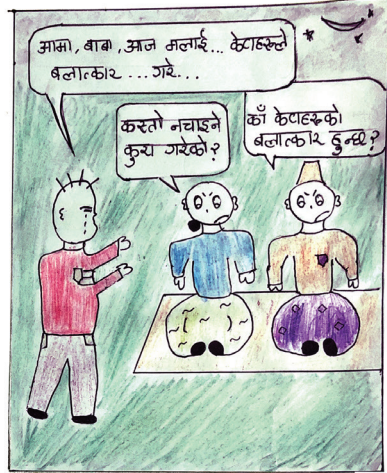 आमा, बाबा, आज मलाई... केटाहरूले
बलात्कार ... गरे...
कस्तो नचाहिने
कुरा गरेको?
काँ केटाहरूको
बलात्कार हुन्छ?